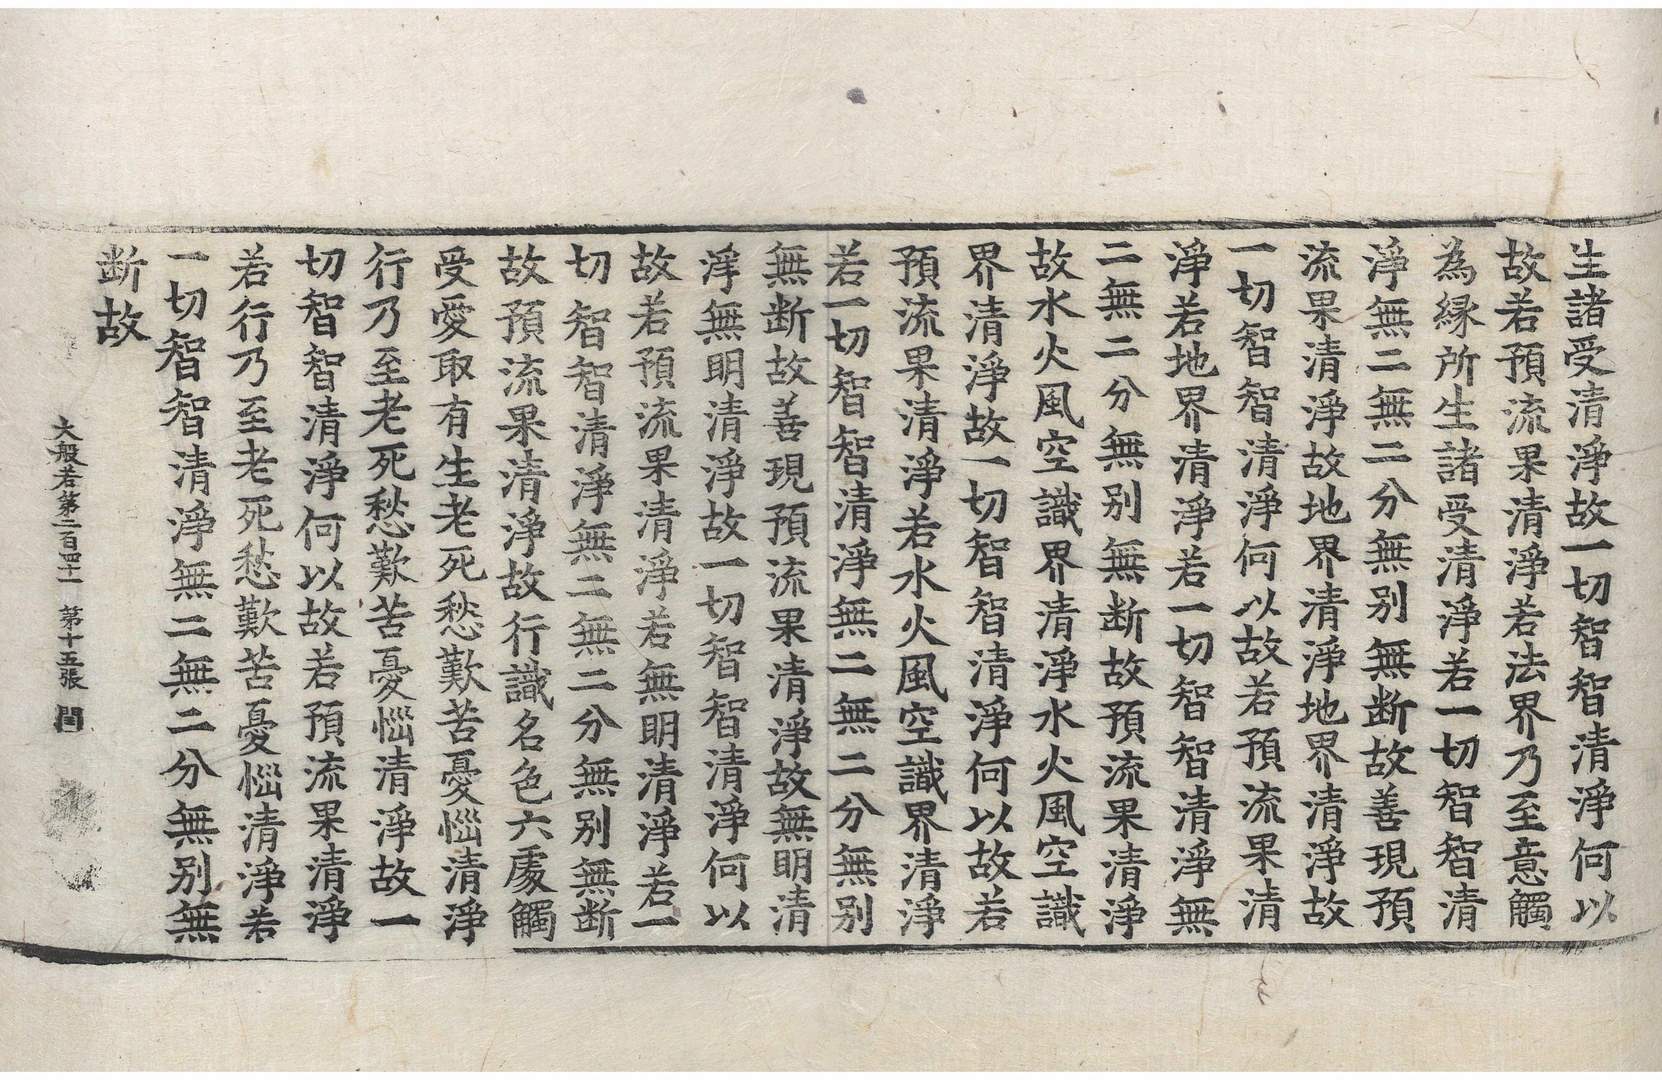 生諸受清淨故一切智智清淨何以
故若預流果清淨若法界乃至意觸
為縁所生諸受清淨若一切智智清
淨無二無二分無别無断故善現預
流果清淨故地界清淨地界清淨故
一切智智清淨何以故若預流果清
淨若地界清淨若一切智智清淨無
二無二分無别無断故預流果清淨
故水火風空識界清淨水火風空識
界清淨故一切智智清淨何以故若
預流果清淨若水火風空識界清淨
若一切智智清淨無二無二分無别
無断故善現預流果清淨故無明清
淨無明清淨故一切智智清淨何以
故若預流果清淨若無明清淨若一
切智智清淨無二無二分無别無断
故預流果清淨故行識名色六處觸
受愛取有生老死愁歎苦憂惱清淨
行乃至老死愁歎苦憂惱清淨故一
切智智清淨何以故若預流果清淨
若行乃至老死愁歎苦憂惱清淨若
一切智智清淨無二無二分無别無
断故
大般若第二百四十一 第十五張 閏